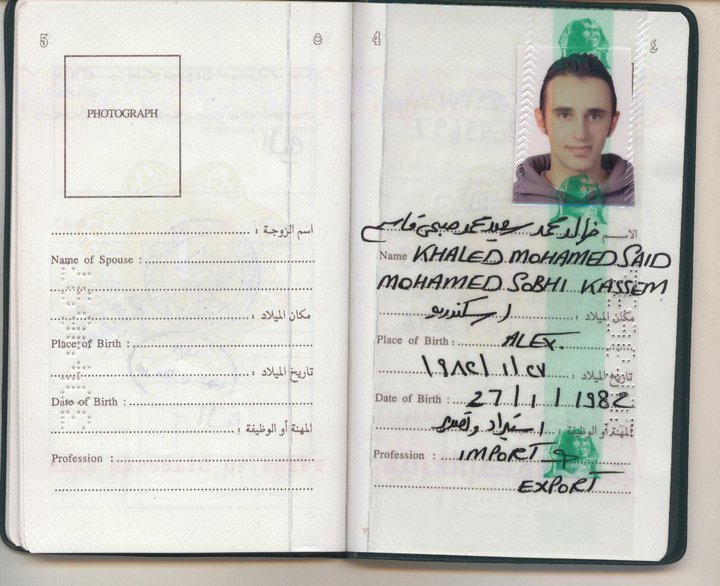 5 ٥
PHOTOGRAPH
اسم الزوجة :
Name of Spouse :
مكان الميلاد :
Place of Birth :
تاريخ الميلاد :
Date of Birth :
المهنة أو الوظيفة :
Profession :
4 ٤
الاسم خالد محمد سعيد محمد صبحي قاسم
Name KHALED MOHAMED SAID
MOHAMED SOBHI KASSEM
مكان الميلاد : اسكندرية
Place of Birth : ALEX.
تاريخ الميلاد : ١٩٨٢/١/٢٧
Date of Birth : 27/1/1982
المهنة أو الوظيفة : استيراد وتصدير
Profession : IMPORT &
EXPORT